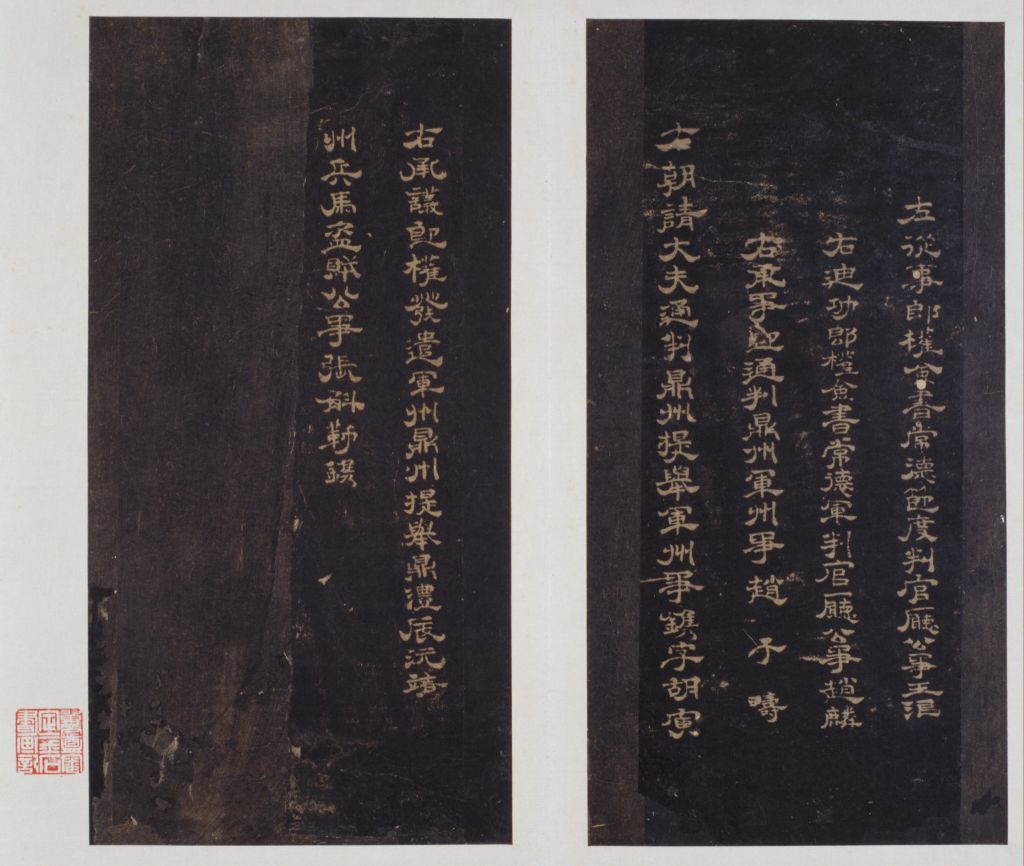 左從事郎權僉書常德節度判官廳公事王湜
右迪功郎權僉書常德軍判官廳公事趙麟
右承事郎通判鼎州軍州事趙子疇
右朝請大夫通判鼎州提舉軍州事鐫字胡寅
右承議郎權發遣軍州鼎州提舉鼎澧辰沅靖
州兵馬盜賊公事張斛勒鐫